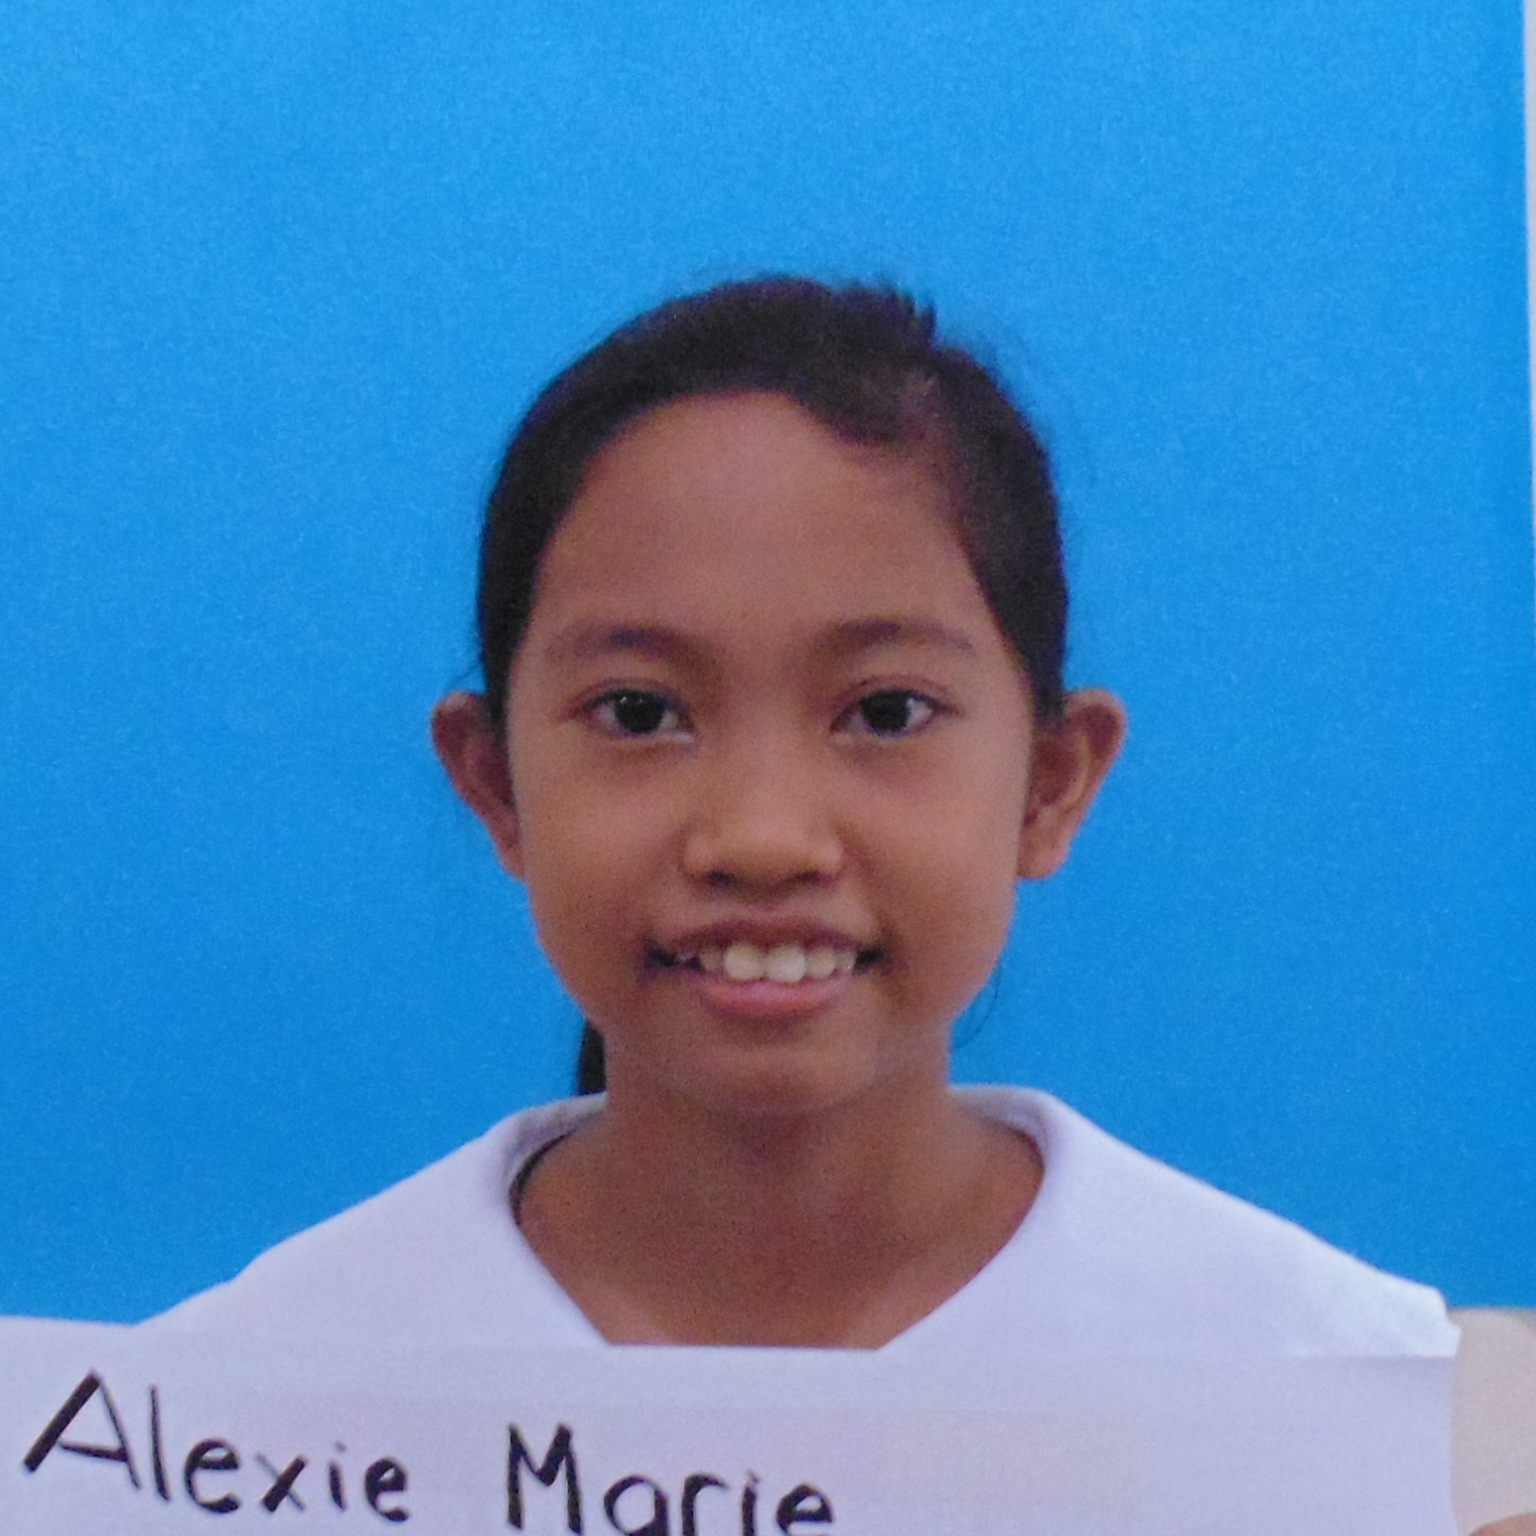 Alexie Marie